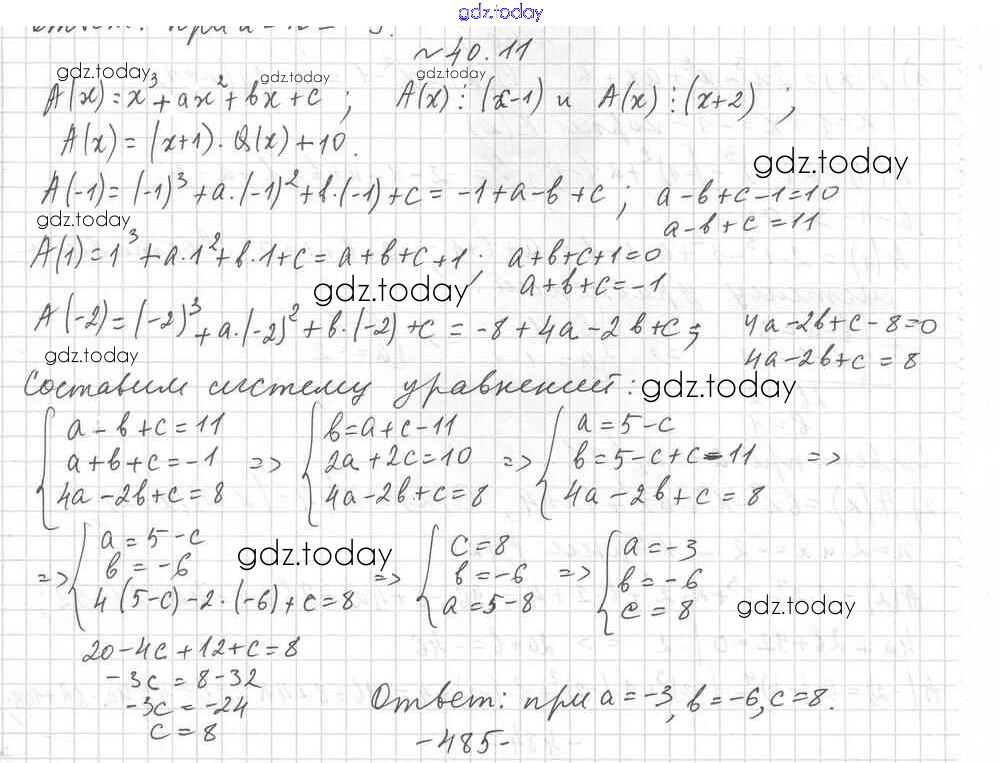 gdz.today
№40.11
gdz.today gdz.today gdz.today
A(x)=x³+ax²+bx+c; A(x)⋮(x-1) и A(x)⋮(x+2);
A(x)=(x+1)·Q(x)+10.
gdz.today
A(-1)=(-1)³+a·(-1)²+b·(-1)+c=-1+a-b+c; a-b+c-1=10
gdz.today a-b+c=11
A(1)=1³+a·1²+b·1+c=a+b+c+1; a+b+c+1=0
gdz.today a+b+c=-1
A(-2)=(-2)³+a·(-2)²+b·(-2)+c=-8+4a-2b+c; 4a-2b+c-8=0
gdz.today 4a-2b+c=8
Составим систему уравнений: gdz.today
{a-b+c=11 {b=a+c-11 {a=5-c
a+b+c=-1 => 2a+2c=10 => b=5-c+c-11 =>
4a-2b+c=8 4a-2b+c=8 4a-2b+c=8
{a=5-c gdz.today {c=8 {a=-3
=> b=-6 => b=-6 => b=-6
4(5-c)-2·(-6)+c=8 a=5-8 c=8 gdz.today
20-4c+12+c=8
-3c=8-32
-3c=-24 Ответ: при a=-3, b=-6, c=8.
c=8
-485-